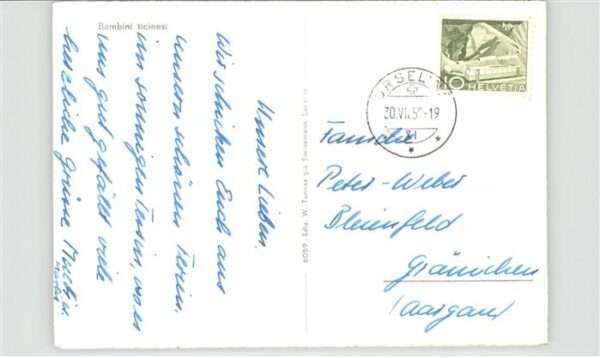 Bambini ticinesi
Unsere Lieben.
Wir schicken Euch aus
unsern schönen Ferien
im sonnigen Tessin, wo es
uns gut gefällt viele
herzliche Grüsse
6059 - Ediz. W. Tannaz già Steinemann, Locarno
10
HELVETIA
30.VII.5 -19
Familie
Peter-Weber
Bleienfeld
Gränichen
(Aargau)